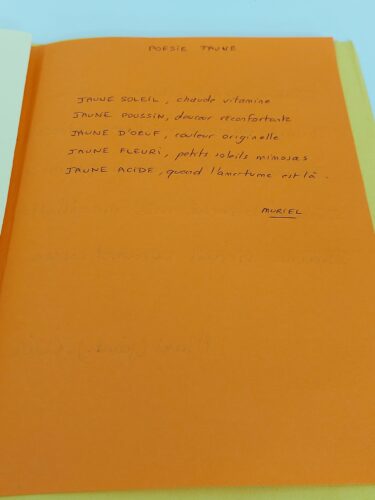 POESIE JAUNE
JAUNE SOLEIL, chaude vitamine
JAUNE POUSSIN, douceur réconfortante
JAUNE D'OEUF, couleur originelle
JAUNE FLEURI, petits soleils mimosas
JAUNE ACIDE, quand l'amertume est là.
MURIEL